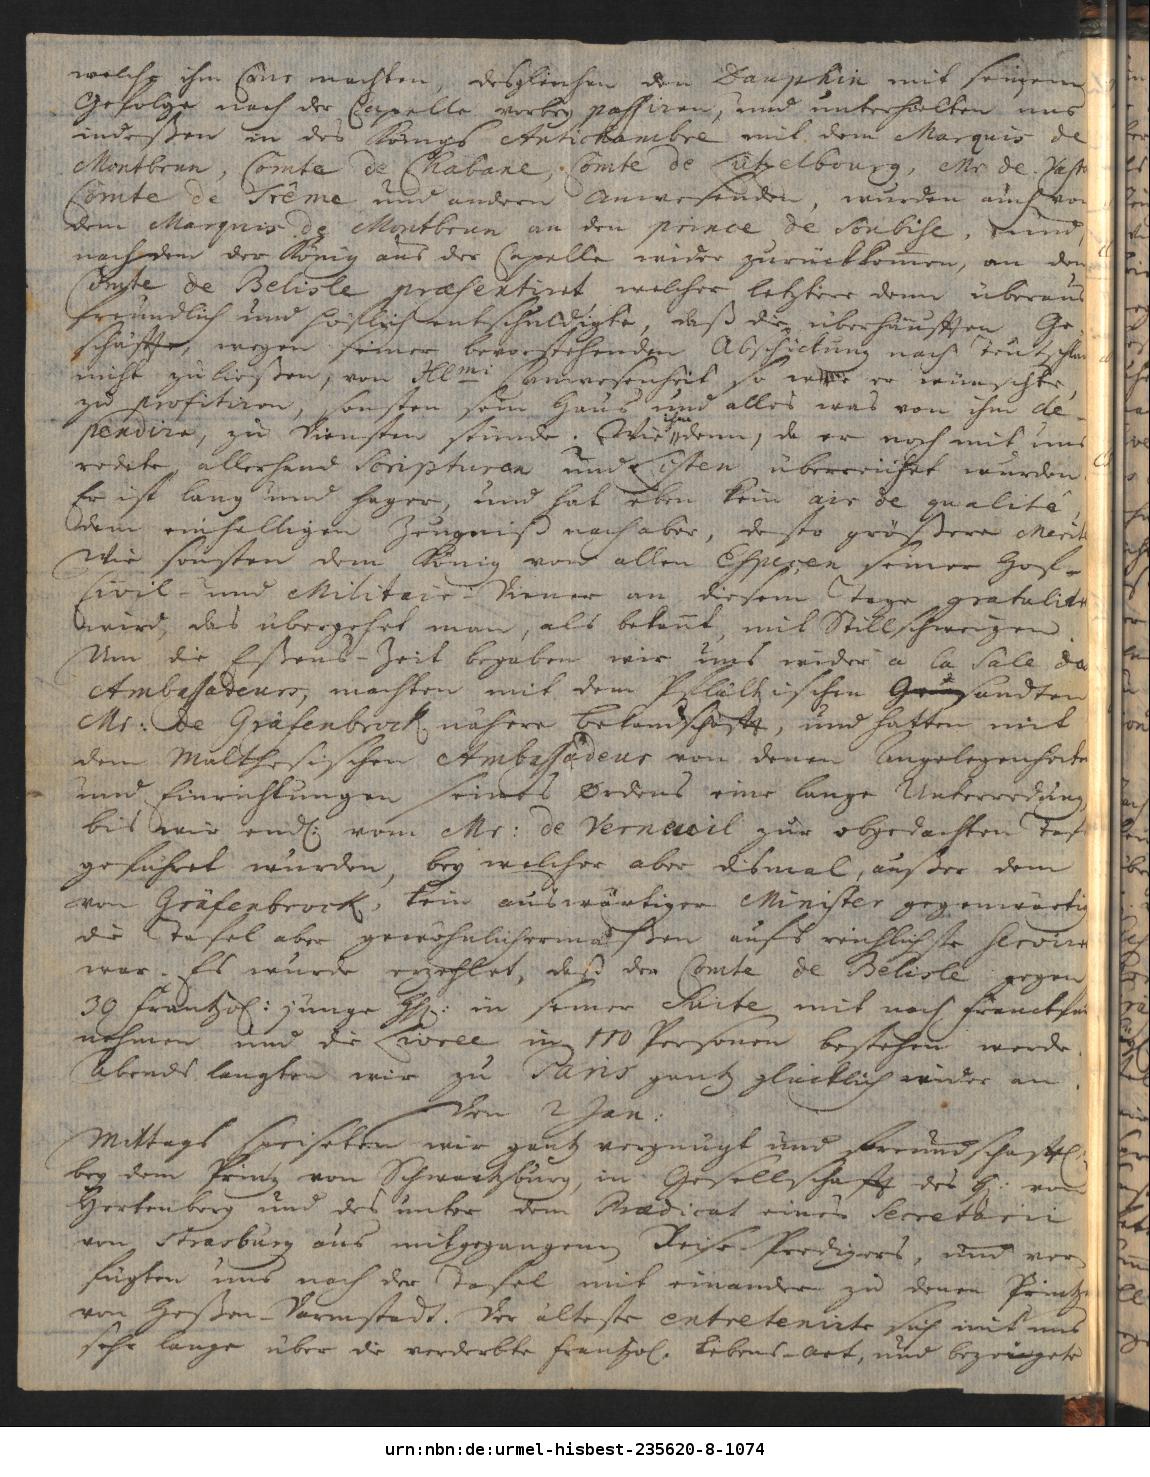 welche ihm Cour machten, desgleichen den Dauphin mit seinem
Gefolge nach der Capelle vorbey passiren, und unterhielten uns
indeßen in des Königs Antichambre mit dem Marquis de
Montbrun, Comte de Chabane, Comte de Lützelbourg, Mr. de
Comte de Trême und andern Anwesenden, wurden auch von
dem Marquis de Montbrun an den prince de Soubise, und,
nachdem der König aus der Capelle wider zurückkommen, an den
Comte de Belisle præsentiret, welcher letztere denn überaus
freundlich und höflich entschuldigte, daß die überhäufften Ge-
schäffte, wegen seiner bevorstehenden Abschickung nach Teutschlan
nicht zuließen, von Illmi Anwesenheit so wie er wünschte,
zu profitiren, sonsten sein Haus und alles was von ihm de-
pendire, zu Diensten stünde. Wie ihm denn, da er noch mit uns
redete, allerhand Scripturen und Listen überreichet wurden.
Er ist lang und hager, und hat eben kein air de qualité,
dem einhelligen Zeugniß nach aber, desto größere Merit
Wie sonsten dem König von allen Espeçen seiner Hof-
Civil- und Militair-Diener an diesem Tage gratulirt
wird, das übergehet man, als bekannt, mit Stillschweigen.
Um die Eßens-Zeit begaben wir uns wider a la Sale da
Ambassadeurs, machten mit dem Pfältzischen Gesandten
Mr: de Gräfenbrock nähere Bekandschafft, und hatten mit
dem Malthesischen Ambassadeur von denen Angelegenheite
und Einrichtungen seines Ordens eine lange Unterredung,
bis wir endl: vom Mr: de Verneuil zur obgedachten Tafe
geführet wurden, bey welcher aber dismal, außer dem
von Gräfenbrock, kein auswärtiger Minister gegenwärtig
die Tafel aber gewöhnlichermaßen aufs reichlichste servire
war. Es wurde erzehlet, daß der Comte de Belisle gegen
30 Frantzös: junge Hh: in seiner Suite mit nach Franckfur
nehmen und die Livree in 110 Personen bestehen werde.
Abends langten wir zu Paris gantz glücklich wider an.
Den 2 Jan:
Mittags speiseten wir gantz vergnügt und freundschafftl:
bey dem Printz von Schwartzburg, in Gesellschafft des H: von
Hertenberg und des unter dem Prædicat eines Secretarii
von Strasburg aus mitgegangenen Reise-Predigers, und ver-
fügten uns nach der Tafel mit einander zu denen Printze
von Heßen-Darmstadt. Der älteste entretenirte sich mit uns
sehr lange über die verderbte frantzös. Lebens-Art, und bezeigete
urn:nbn:de:urmel-hisbest-235620-8-1074